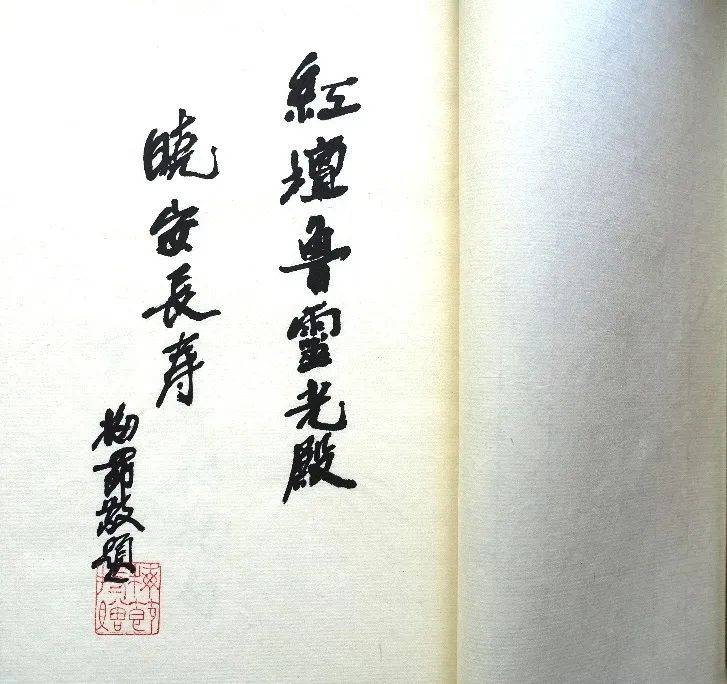 紅壇魯靈光殿
曉安長壽
梅節敬題